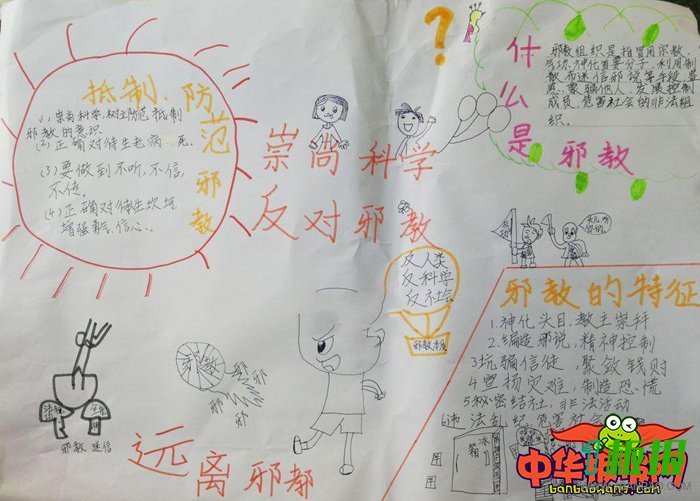 抵制、防范邪教
(1)、崇尚科学,树立防范抵制
邪教的意识
(2)、正确对待生老病死
(3)要做到不听,不信,
不传。
(4)正确对待生坎坷
增强 信心、
崇尚科学
反对邪教
?
什么是邪教
邪教组织是指冒用宗教
气功,神化首要分子,利用制
散布迷信邪说等手段 惑
惑,蒙骗他人、发展控制
成员,危害社会的非法组
织。
反人类
反科学
反社会
邪教本质
邪教的特征
1.神化头目,教主崇拜
2.编造邪说,精神控制
3坑骗信徒,聚敛钱财
4宣扬灾难,制造恐慌
5秘密结社,非法活动
6违法乱纪,危害社会
冰箱
邪教
邪
邪
邪
邪教 迷信
远离邪都
中华 报网
banbaowang.com